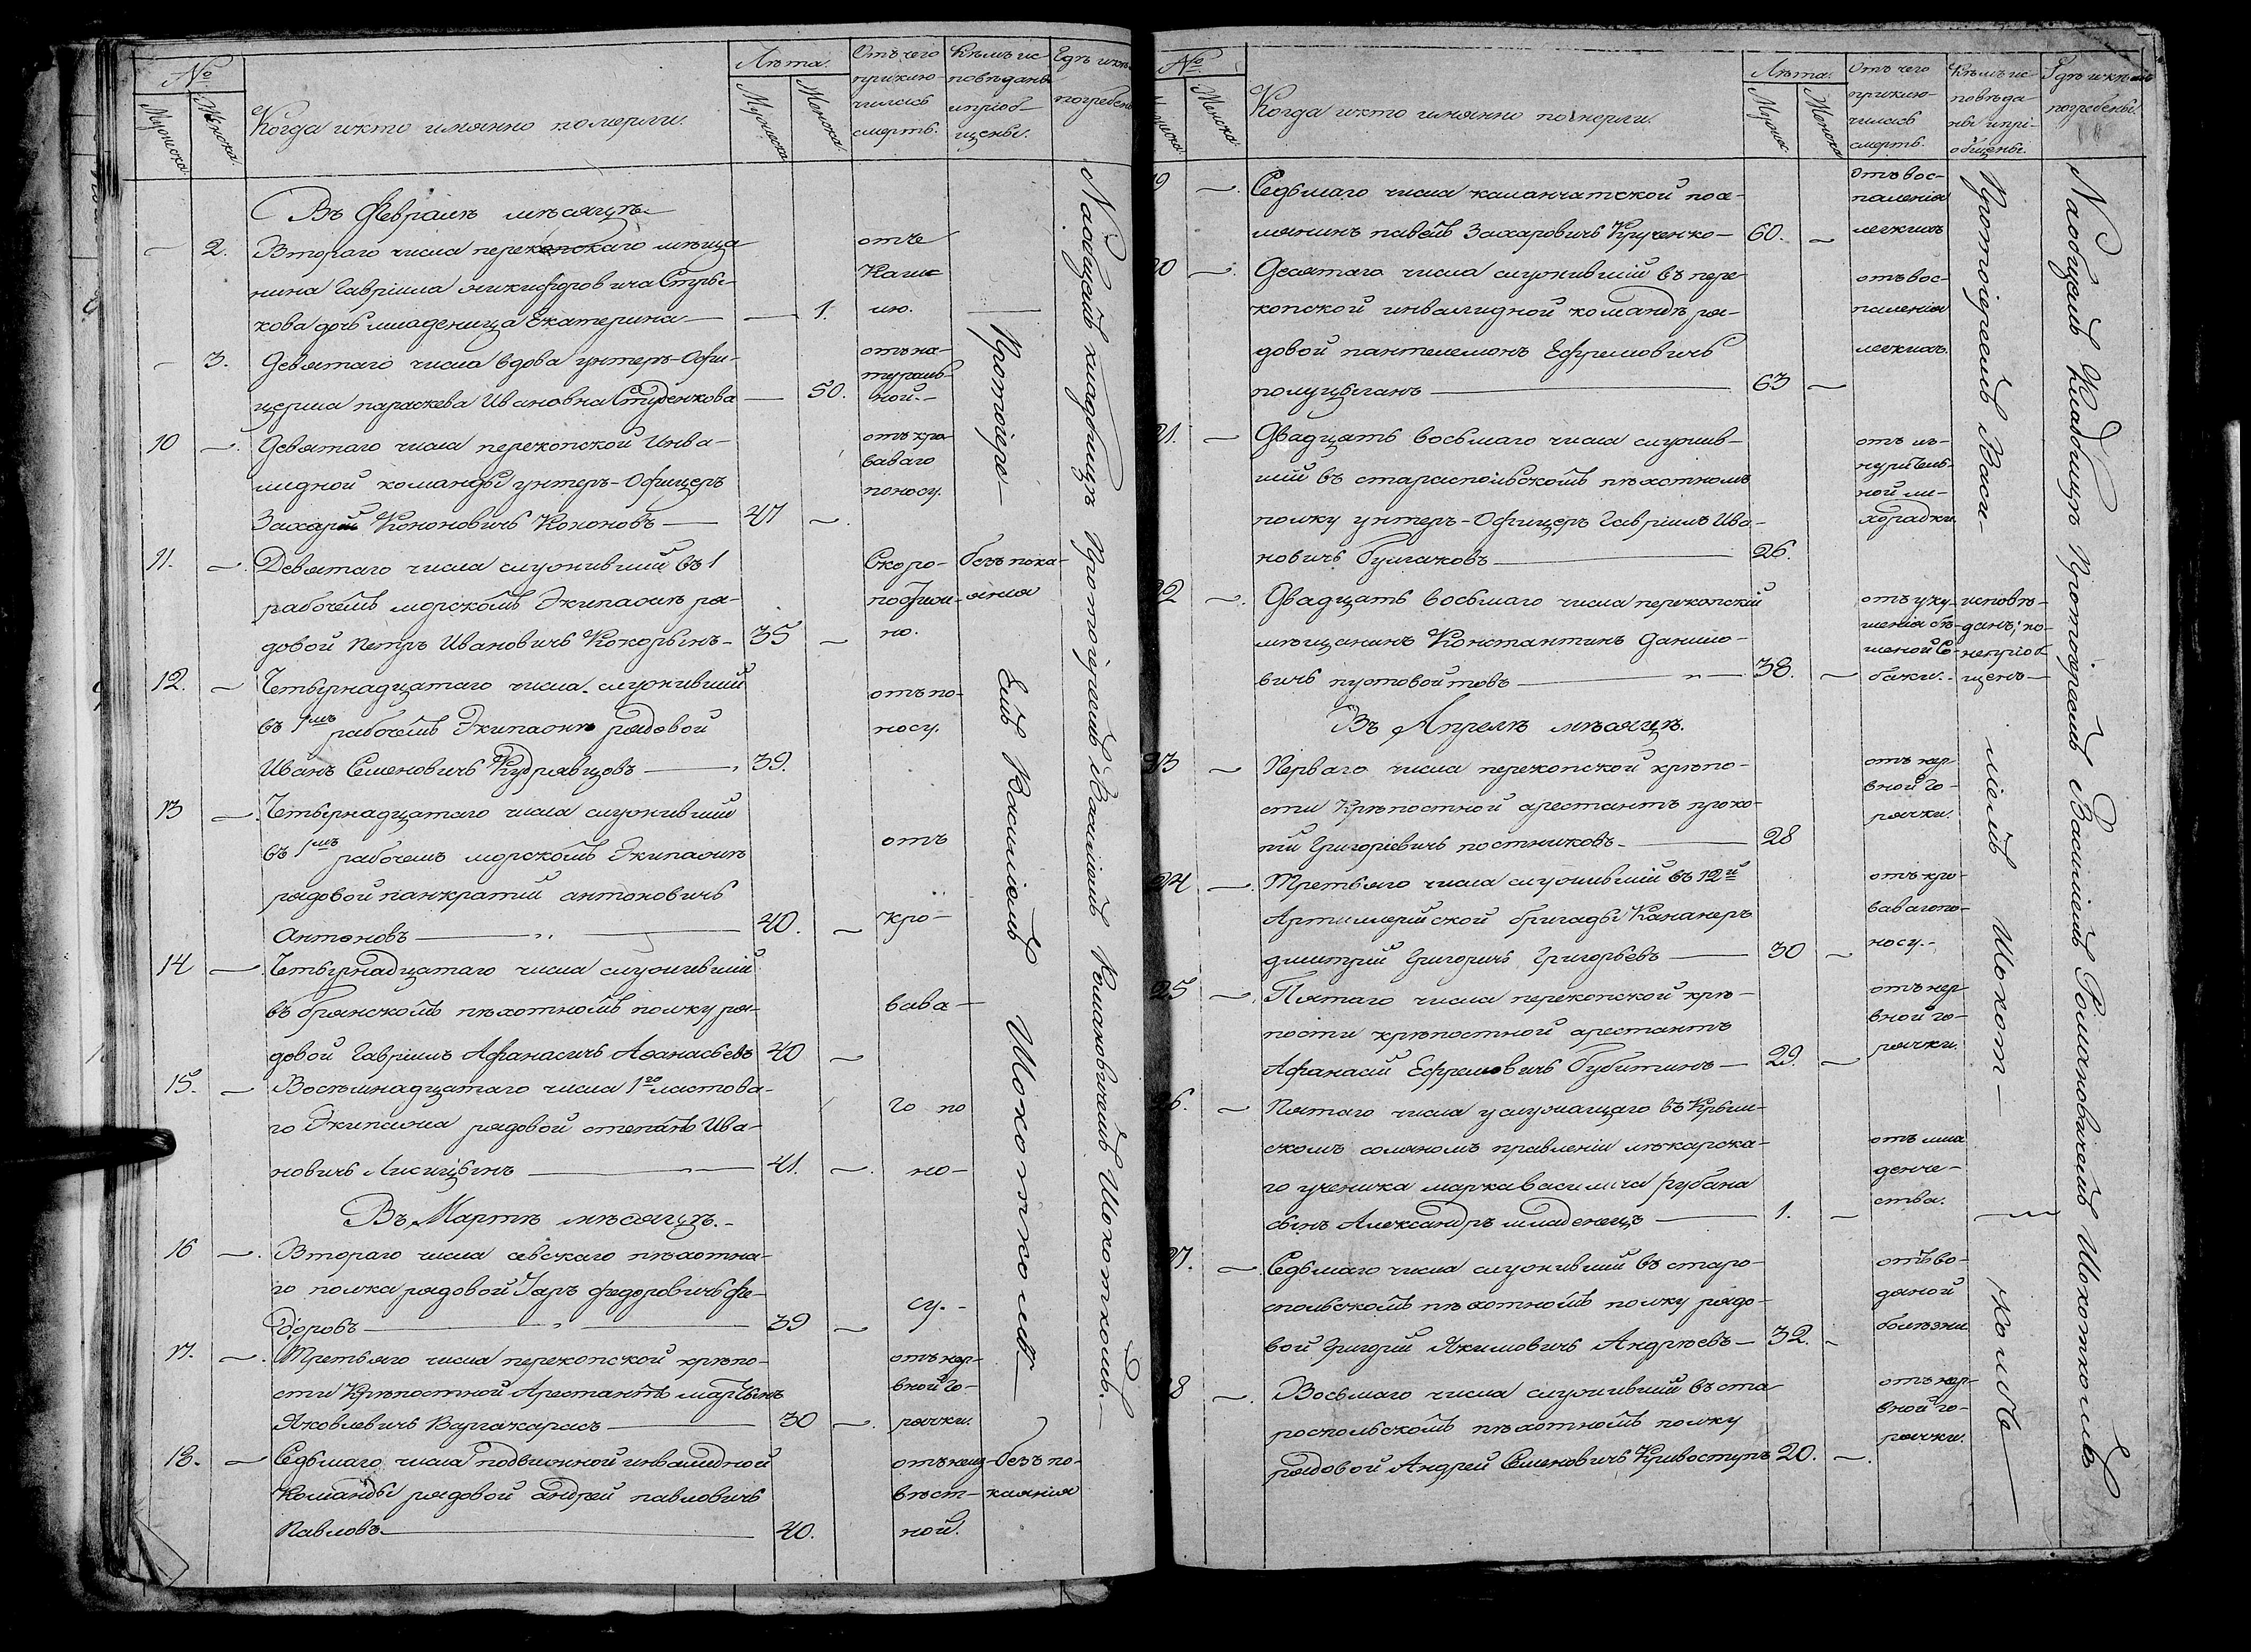 №
Мужска
Женска
Когда икто имянно померли.
Лѣта.
Мужеска
Женска.
Отъ чего
приклю-
чилась
смерть.
Кѣмъ ис-
повѣданы
иприоб-
щены.
Гдѣ икѣм
погребены
Въ Февралѣ мѣсяцѣ
2. Втораго числа перекопскаго мѣща
нина Гавріила никифоровича
кова дочь младеница Екатерина — 1.
отъ
Каш
лю.
3. Девятаго числа вдова унтеръ-Офи-
церша параскева Ивановна Студенкова — 50.
отъ на-
тураль-
ной.-
10 Девятаго числа перекопской Инва-
лидной команды унтеръ-Офицеръ
Захарій Кононовичь Кононовъ — 47
отъ кро-
ваваго
поносу.
11. Девятаго числа служившій въ 1
рабочемъ морскомъ Экипажѣ ря-
довой Петръ Ивановичь Кокорынъ - 35
Скоро-
постиж-
но.
безъ пока-
яния
12. Четырнадцатаго числа служившій
въ 1мъ рабочемъ Экипажѣ рядовой
Иванъ Семеновичь Кудрявцовъ — 39.
отъ по-
носу.
13 Четырнадцатаго числа служившій
въ 1мъ рабочемъ морскомъ Экипажѣ
рядовой панкратій антоновичь
Антоновъ — 40.
14 Четырнадцатаго числа служившій
въ брянскомъ пѣхотномъ полку ря-
довой Гавріилъ Афанасичь Афанасьевъ 40
15. Восемнадцатаго числа 1го ластова-
го Экипажа рядовой степанъ Ива-
новичь Лисицынъ — 41.
Въ Мартѣ мѣсяцѣ.-
16 Втораго числа севскаго пѣхотна-
го полка рядовой федоровичь фе-
доровъ — 39
отъ
кро-
вава-
го по
но-
су.-
17. Третьяго числа перекопской крѣпо-
сти Крѣпостной Арестантъ мартынъ
Яковлевичь — 30
отъ нер-
вной го-
рячки.
18. Седьмаго числа подвижной инвалидной
Команды рядовой андрей павловичь
Павловъ — 40.
отъ неиз-
вѣст-
ной.
безъ по-
каяния
Протоіере-
емъ Василіемъ Шокоткомъ
Наобщемъ кладбищѣ Протоіереемъ Василіемъ Романовичемъ Шокоткомъ.
№
Женска.
Когда икто имянно померли
Лѣта.
Мужеска
Женска
Отъ чего
приклю-
чилась
смерть.
Кѣмъ ис-
повѣда-
ны ипрі-
общены.
Гдѣ икѣмъ
погребены.
19 Седьмаго числа каланчатской посе-
лянинъ павелъ Захаровичь Крученко — 60.
отъ вос-
паленія
легкихъ
20 Десятаго числа служившій въ пере-
копской инвалидной командѣ ря-
довой пантелемонъ Ефремовичь
полуцыганъ — 63
отъ вос-
паленія
легкихъ.
21. Двадцать восьмаго числа служив-
шій въ стараспольскомъ пѣхотномъ
полку унтеръ-Офицеръ Гавріилъ Ива-
новичь Булгаковъ — 26.
отъ из-
нурительн-
ной ли-
хорадки.
22 Двадцать восьмаго числа перекопскій
мѣщананъ Константинъ Данило-
вичь пустовойтовъ — 38.
отъ уку-
шенія бѣ-
шеной Со-
баки.
исповѣ-
данъ, но
неприоб
щенъ
Въ Апрелѣ мѣсяцѣ.
23 Перваго числа перекопской крѣпо-
сти Крѣпостной арестантъ проко-
пій Григоріевичь постниковъ. — 28
отъ нер-
вной го-
рячки.
24 Третьяго числа служившій въ 12й
Артиллерійской бригады Кананеръ
димитрій Григоричь Григорьевъ — 30
отъ кро-
ваваго по-
носу.-
25 Пятаго числа перекопской крѣ-
пости крѣпостной арестантъ
Афанасій Ефремовичь Губитинъ — 29.
отъ нер
вной го-
рячки.
26. Пятаго числа услужащаго въ Крым-
скомъ соляномъ правленіи лѣкарска-
го ученика марка василича рубана
сынъ Александръ младенецъ — 1.
отъ мла
денче-
ства.
27. Седьмаго числа служившій въ старо-
спольскомъ пѣхотномъ полку рядо-
вой Григорій Якимовичь Андрѣевъ — 32.
отъ во-
дяной
болѣзни
28 Восьмаго числа служившій въ ста
роспольскомъ пѣхотномъ полку
рядовой Андрей Семеновичь Кривоступъ 20.
отъ нер-
вной го-
рячки.
Протоіереемъ Васи-
ліемъ Шокот-
комъ
Наобщемъ Кладбищѣ Протоіереемъ Василіемъ Романовичемъ Шокоткомъ